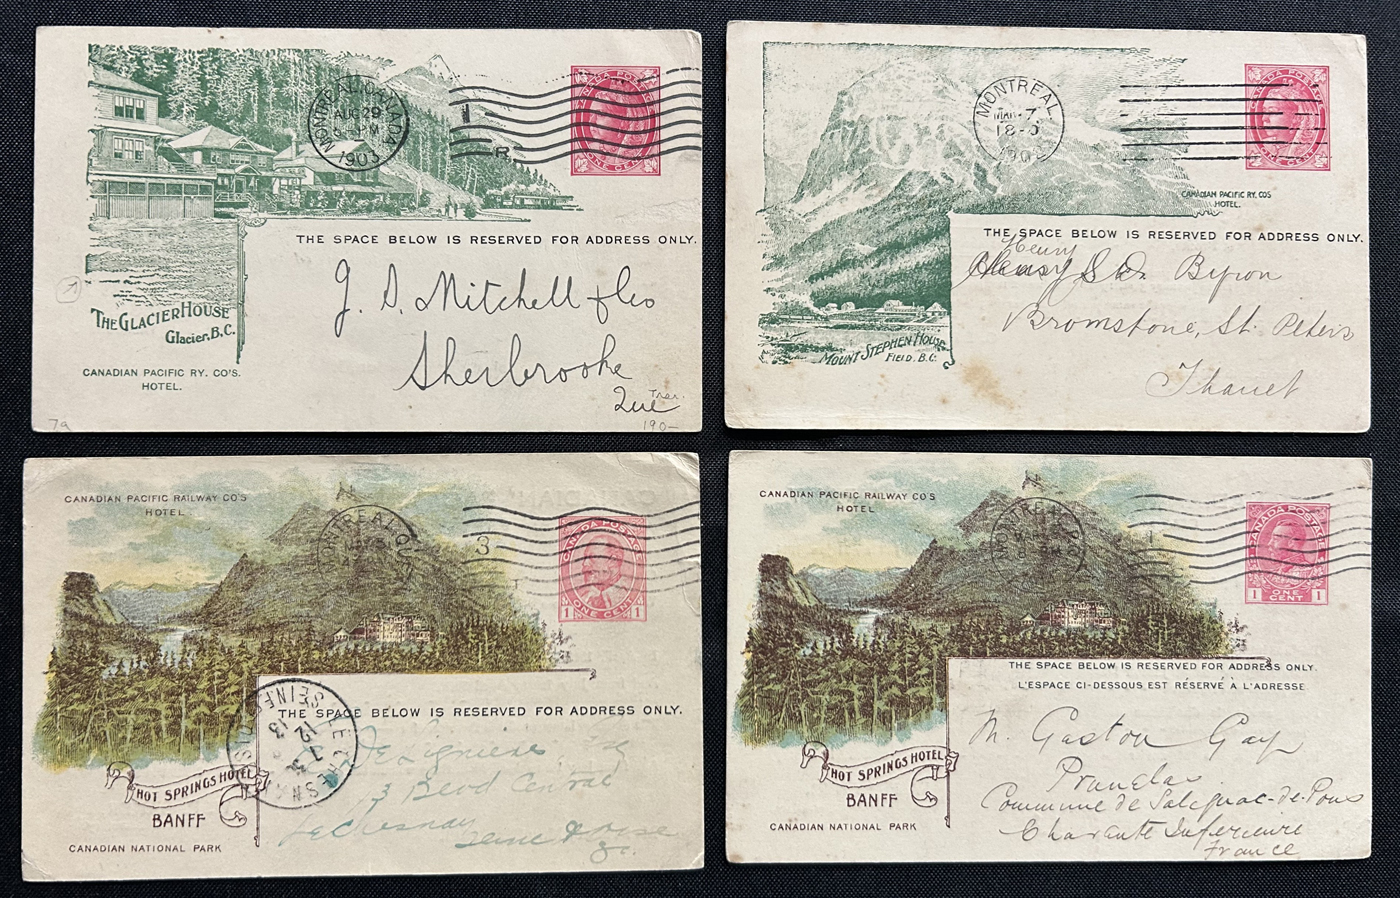 MONTREAL.CANADA
AUG 29
1903
R.
CANADA POSTAGE
ONE CENT
THE SPACE BELOW IS RESERVED FOR ADDRESS ONLY.
THE GLACIER HOUSE
Glacier, B.C.
CANADIAN PACIFIC RY. CO'S.
HOTEL.
J. S. Mitchell & Co
Sherbrooke
Que
190-
MONTREAL
MAR 7
CANADA POSTAGE
ONE CENT
CANADIAN PACIFIC RY. COS
HOTEL.
THE SPACE BELOW IS RESERVED FOR ADDRESS ONLY.
Henry
Byron
Bromstone, St. Peters
Thanet
MOUNT STEPHEN HOUSE
FIELD, B.C.
CANADIAN PACIFIC RAILWAY CO'S
HOTEL.
MONTREAL QUE
3
CANADA POSTAGE
1 ONE CENT 1
THE SPACE BELOW IS RESERVED FOR ADDRESS ONLY.
LE CHESNAY
SEINE
12
13
3 Blvd Central
Le Chesnay
Seine & Oise
HOT SPRINGS HOTEL
BANFF
CANADIAN NATIONAL PARK
CANADIAN PACIFIC RAILWAY CO'S
HOTEL
1
CANADA POSTAGE
1 ONE CENT 1
THE SPACE BELOW IS RESERVED FOR ADDRESS ONLY.
L'ESPACE CI-DESSOUS EST RÉSERVÉ À L'ADRESSE
M. Gaston Gay
Commune de Salignac-de-Pons
Charante Inferieure
France
HOT SPRINGS HOTEL
BANFF
CANADIAN NATIONAL PARK